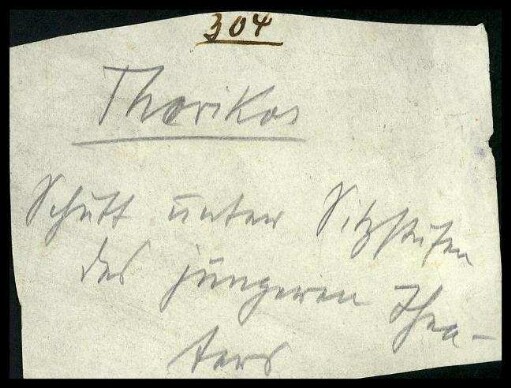 304
Thorikos
Schutt unter Sitzstufen
des jüngeren Thea-
ters